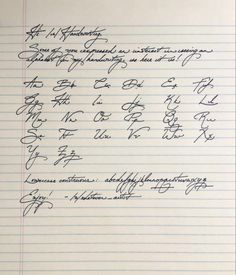 Hi /r/ Handwriting
Some of you expressed an interest in seeing an
alphabet for my handwriting, so here it is!
Aa Bb Cc Dd Ee Ff
Gg Hh Ii Jj Kk Ll
Mm Nn Oo Pp Qq Rr
Ss Tt Uu Vv Ww Xx
Yy Zz
Lowercase continuous: abcdefghijklmnopqrstuvwxyz
Enjoy!